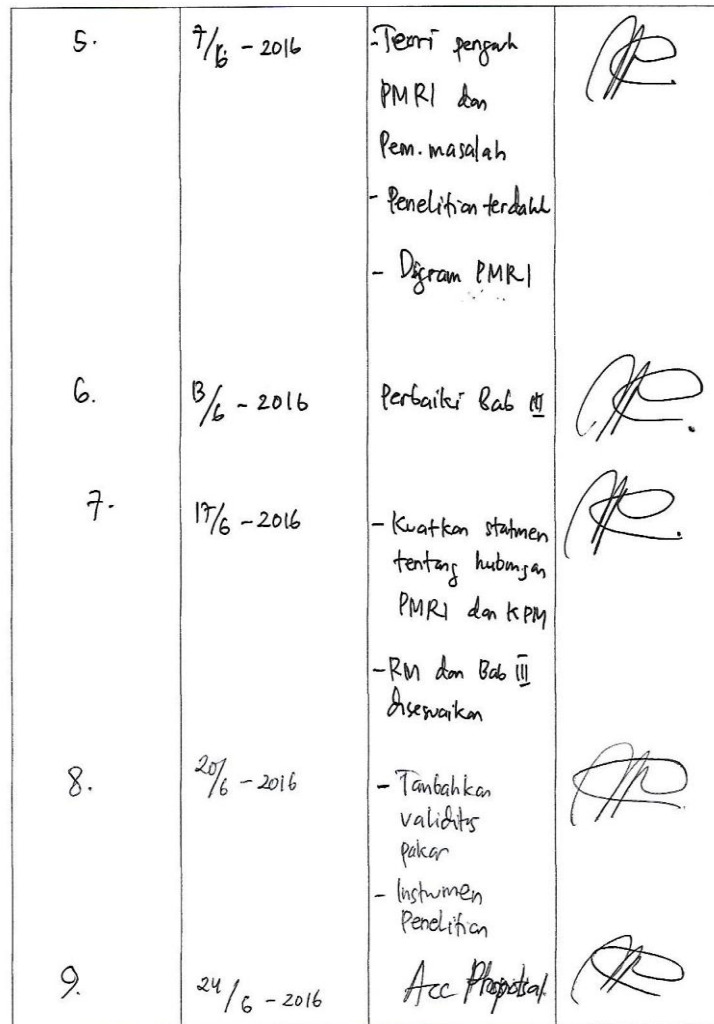 5. 7/6 - 2016 - Teori pengarh
PMRI dan
Pem. masalah
- Penelitian terdahl
- Digram PMRI
6. 13/6 - 2016 Perbaiki Bab III
7. 17/6 - 2016 - Kuatkan statmen
tentang hubungan
PMRI dan KPM
- RM dan Bab III
disesuaikan
8. 20/6 - 2016 - Tambahkan
validitas
pakar
- Instrumen
Penelitian
9. 24/6 - 2016 Acc Proposal